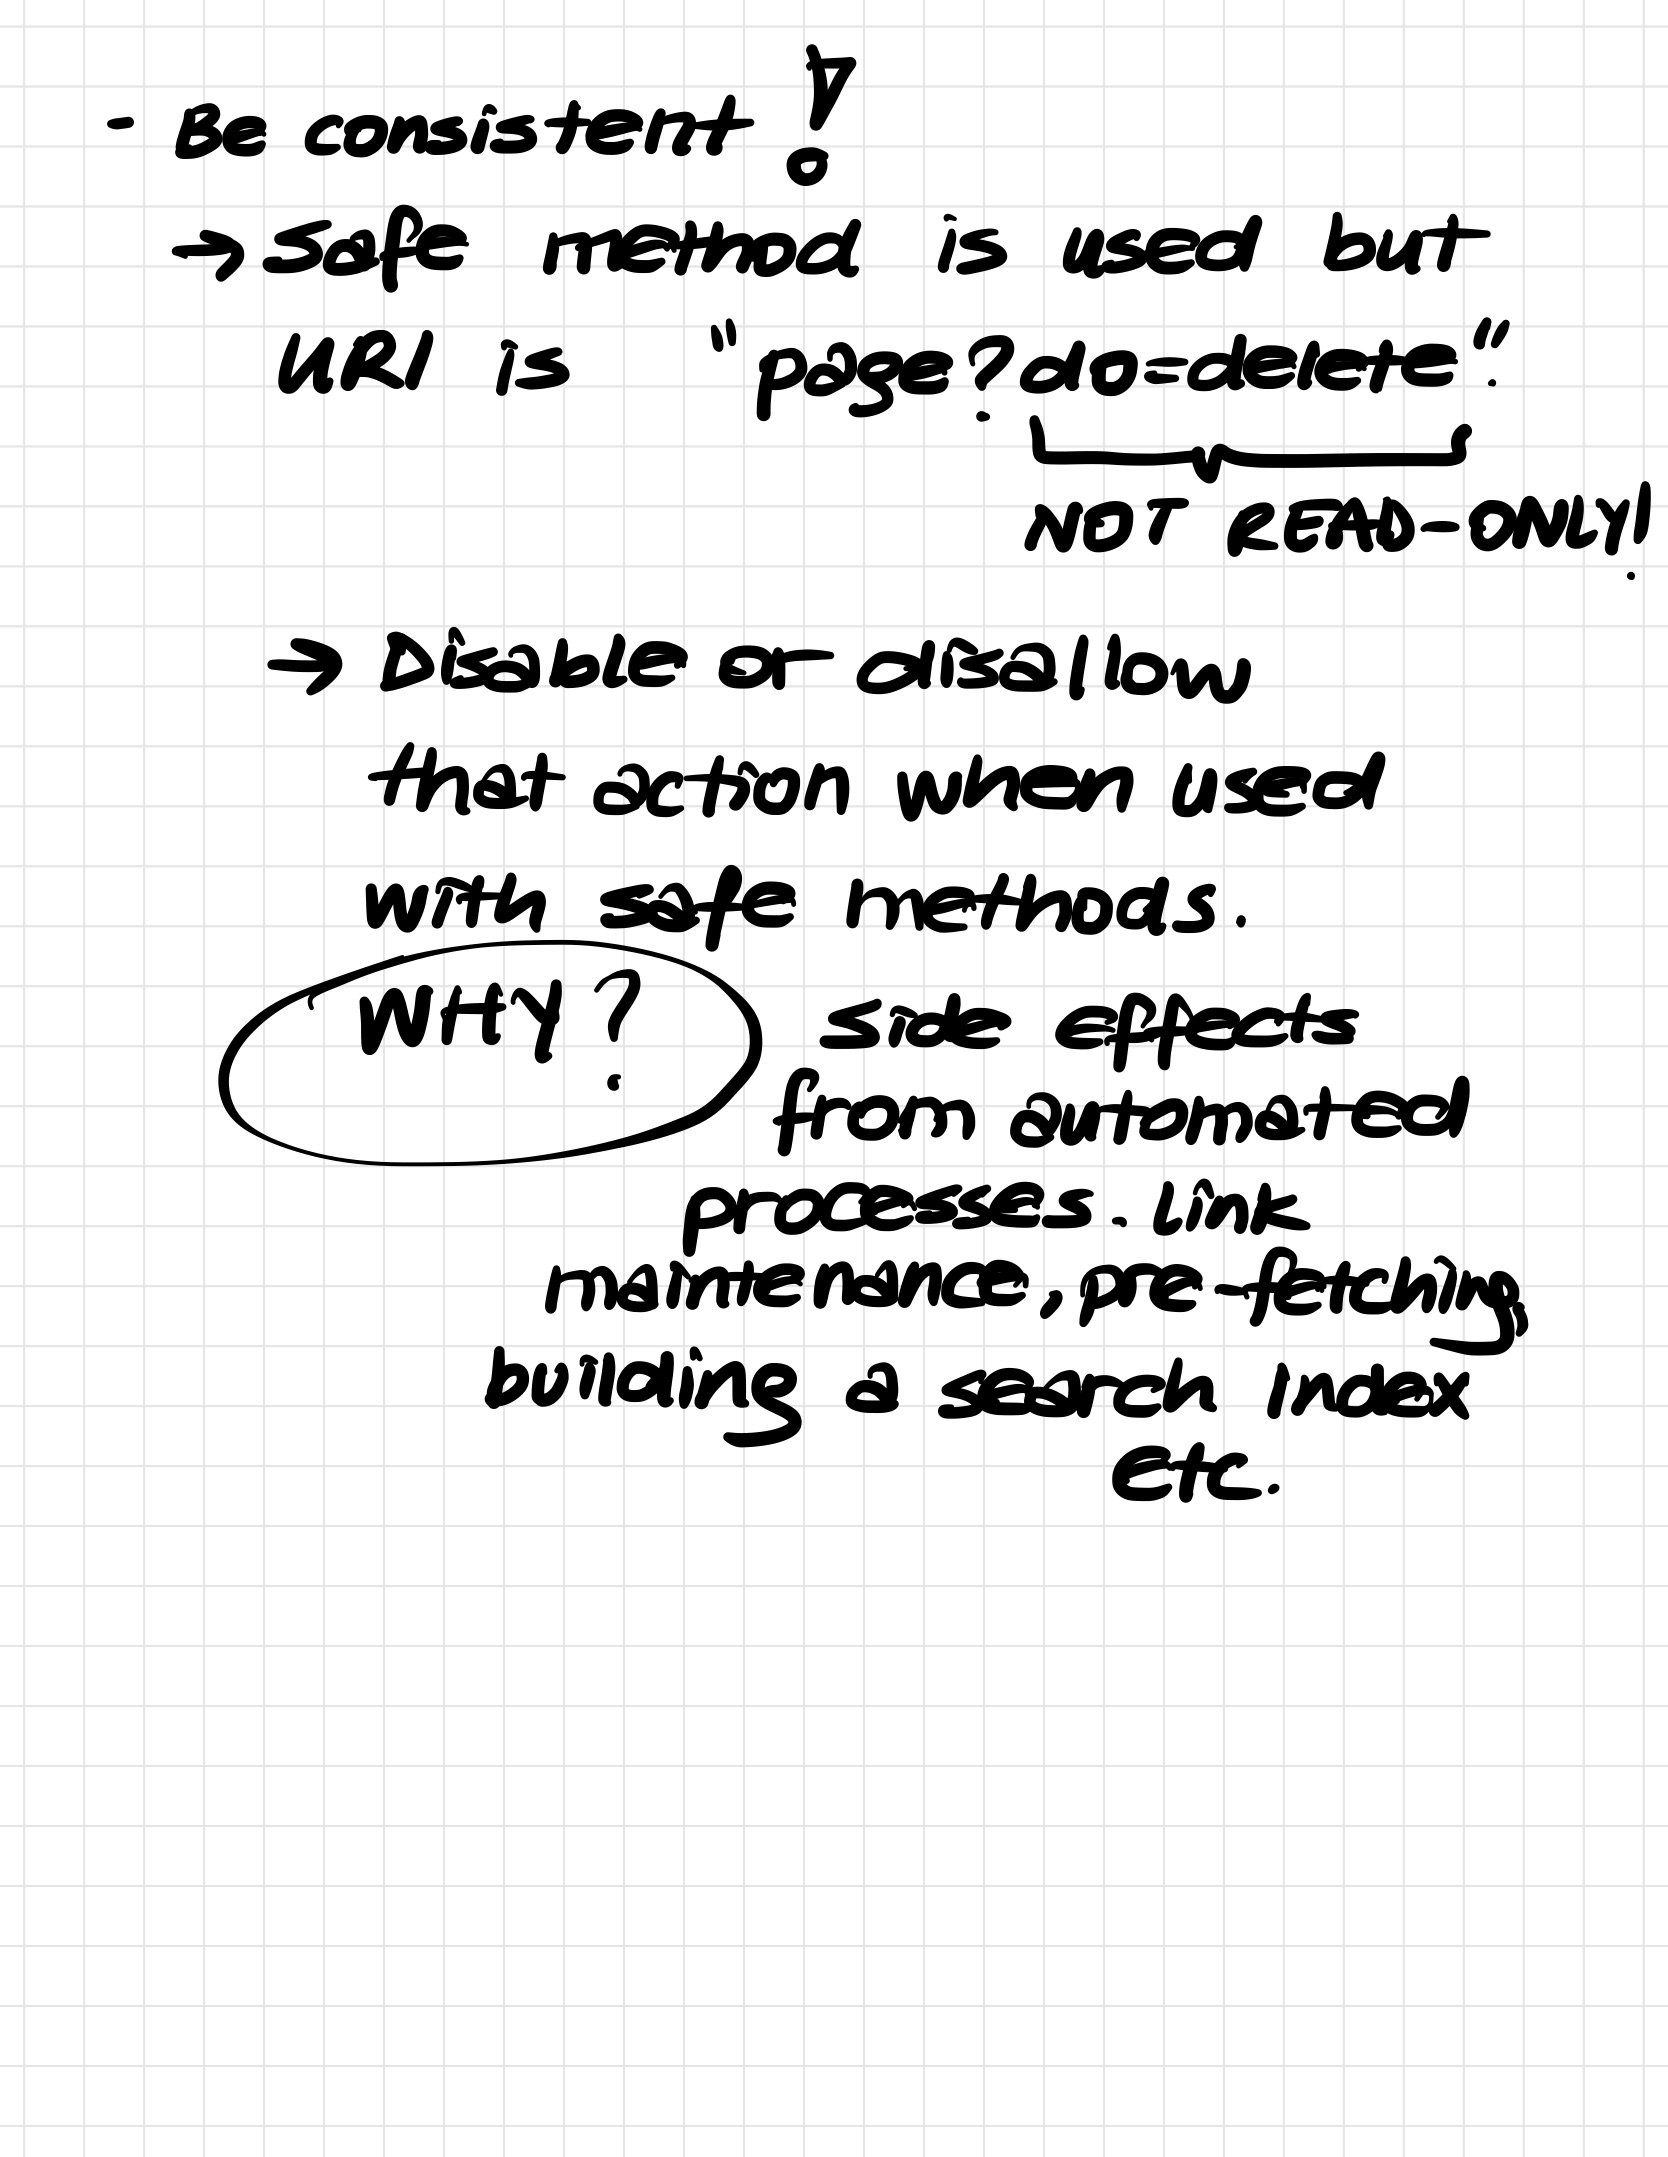 - Be consistent!
→ Safe method is used but
URI is "page?do=delete".
NOT READ-ONLY!
→ Disable or disallow
that action when used
with safe methods.
WHY? side effects
from automated
processes. Link
maintenance, pre-fetching,
building a search index
etc.